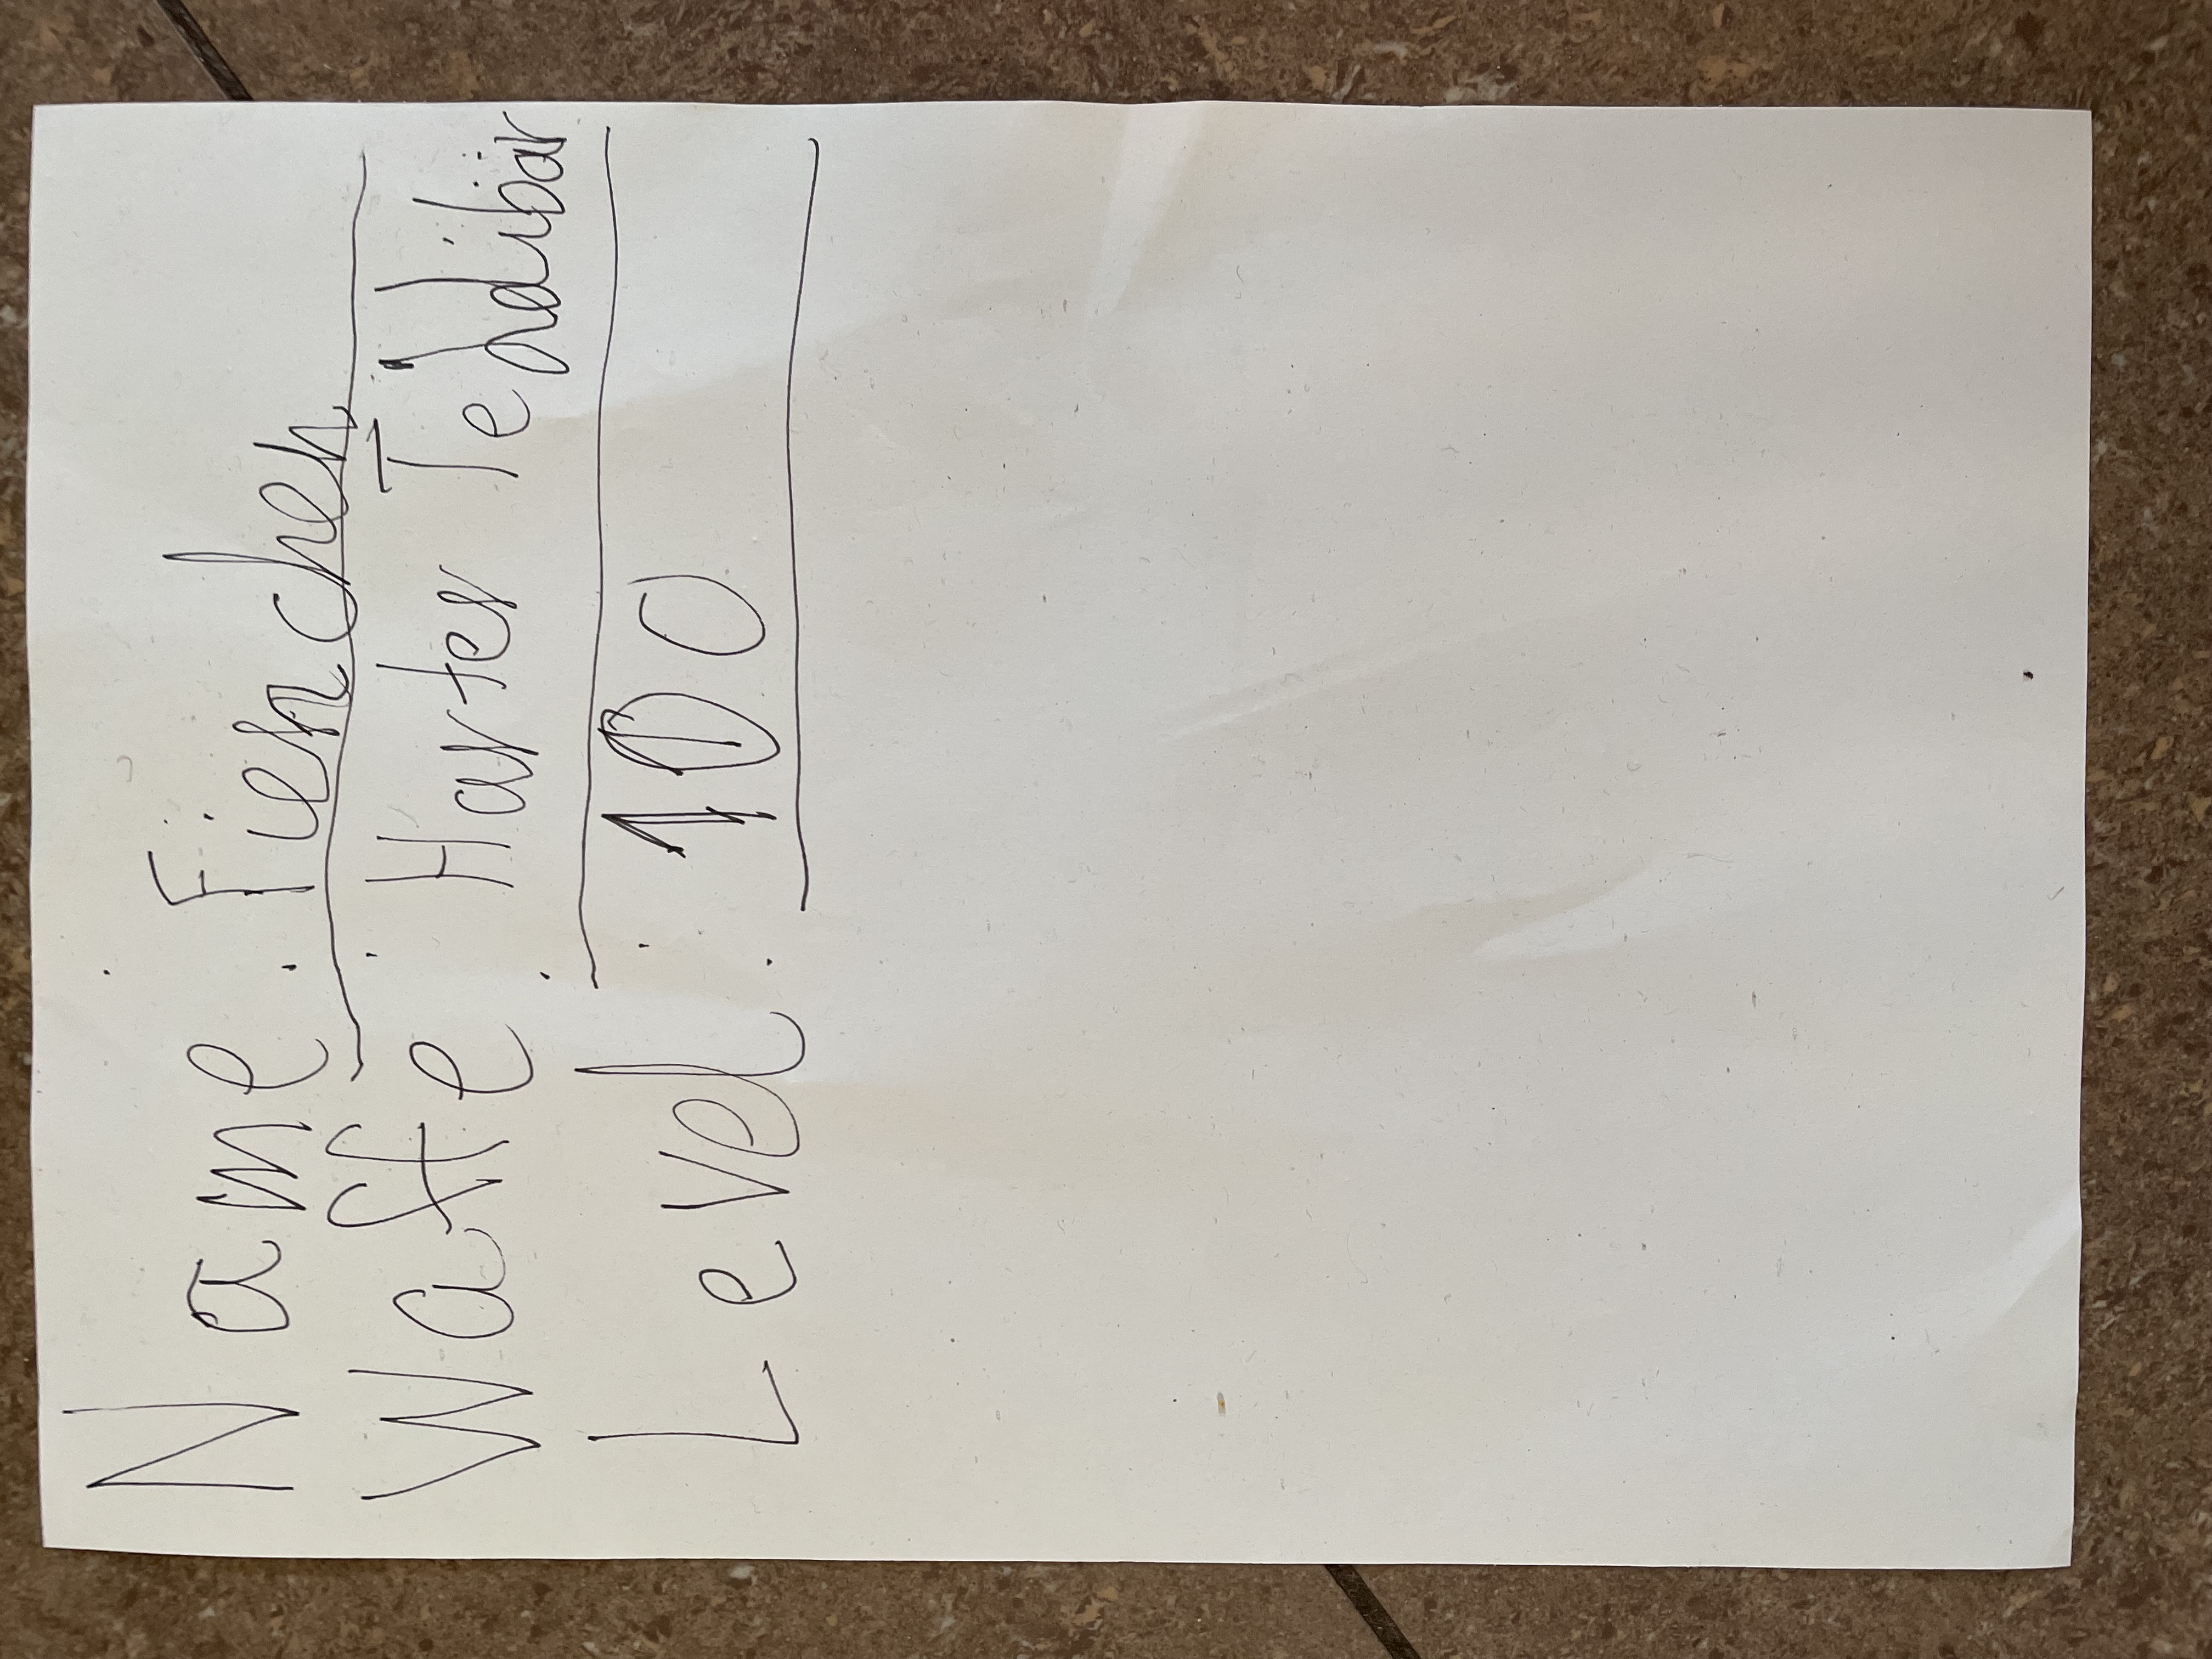 Name: Fienchen
Waffe: Harter Teddibär
Level: 100